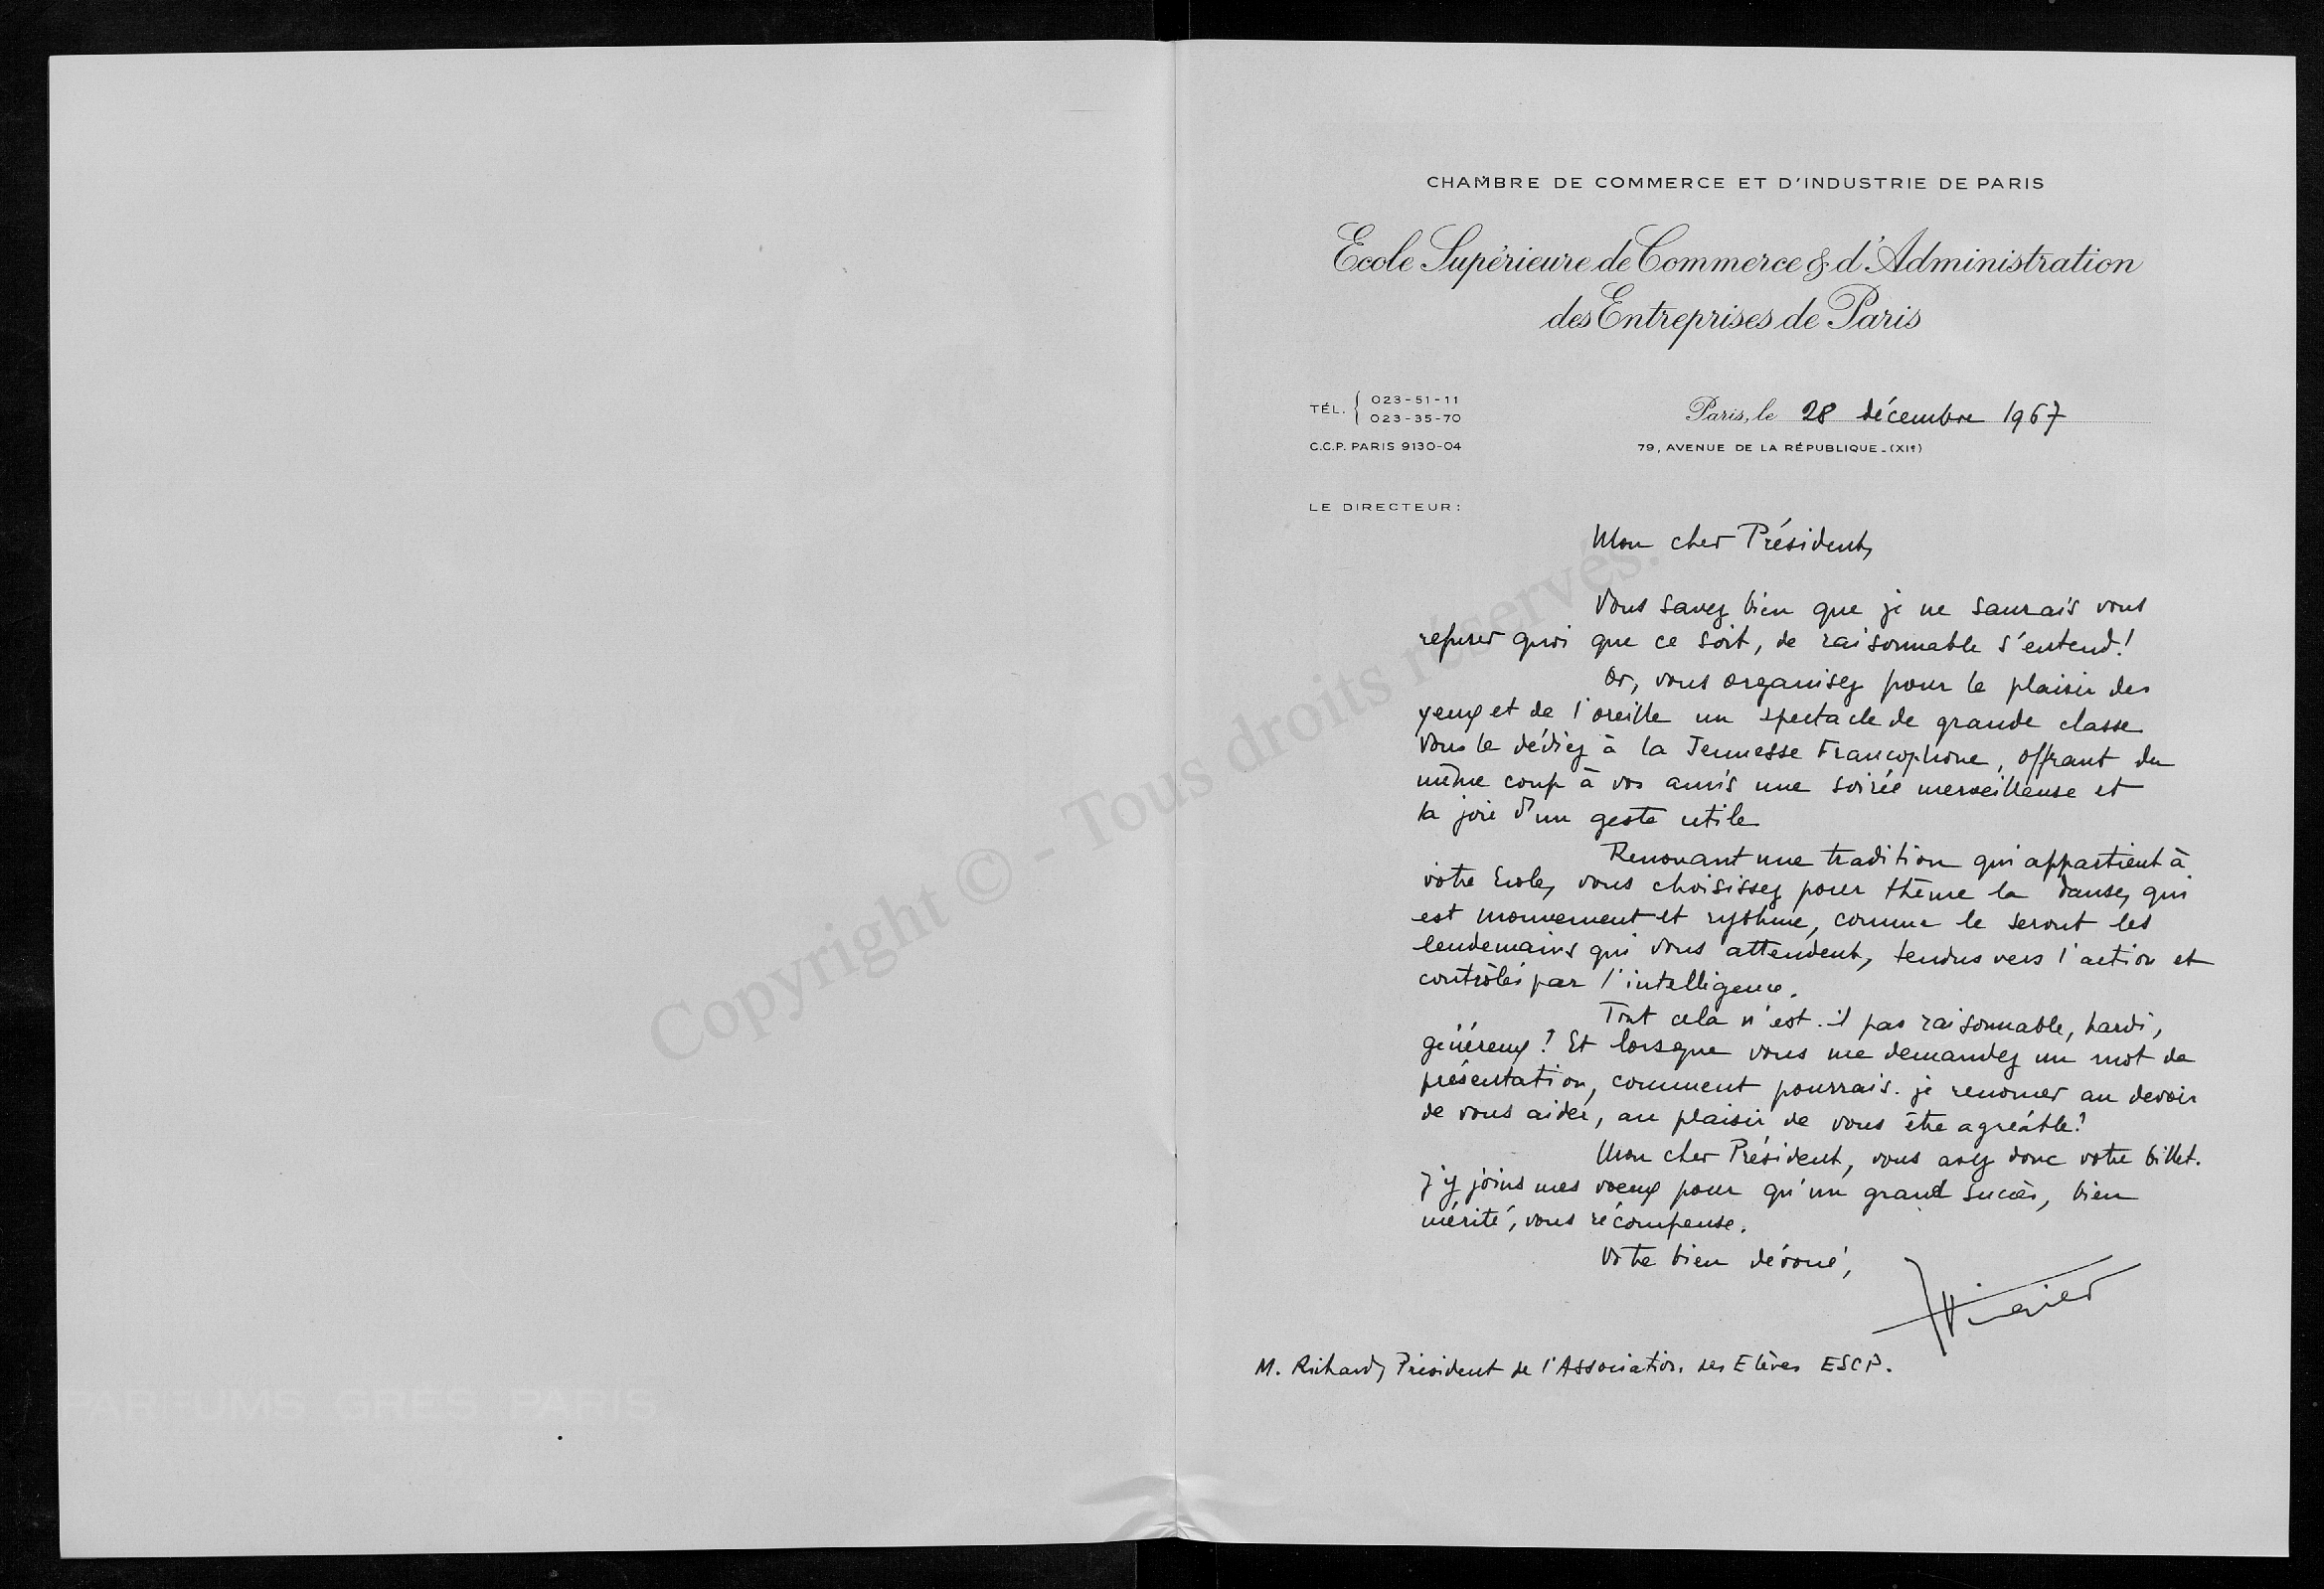 CHAMBRE DE COMMERCE ET D'INDUSTRIE DE PARIS
Ecole Supérieure de Commerce & d'Administration
des Entreprises de Paris
TÉL. { 023-51-11
023-35-70
C.C.P. PARIS 9130-04
Paris, le 28 décembre 1967
79, AVENUE DE LA RÉPUBLIQUE_(XIe)
LE DIRECTEUR:
Mon cher Président,
Vous savez bien que je ne saurais vous
refuser quoi que ce soit, de raisonnable s'entend!
Or, vous organisez pour le plaisir des
yeux et de l'oreille un spectacle de grande classe
Vous le dédiez à la Jeunesse Francophone, offrant du
même coup à vos amis une soirée merveilleuse et
la joie d'un geste utile
Renouant une tradition qui appartient à
votre Ecole, vous choisissez pour thème la danse, qui
est mouvement et rythme, comme le seront les
lendemains qui vous attendent, tendus vers l'action et
contrôlés par l'intelligence.
Tout cela n'est-il pas raisonnable, hardi,
généreux? Et lorsque vous me demandez un mot de
présentation, comment pourrais-je renoncer au devoir
de vous aider, au plaisir de vous être agréable?
Mon cher Président, vous avez donc votre billet.
J'y joins mes voeux pour qu'un grand succès, bien
mérité, vous récompense.
Votre bien dévoué,
M. Richard, Président de l'Association des Elèves ESCP.
PARFUMS GRES PARIS
Copyright © - Tous droits réservés.